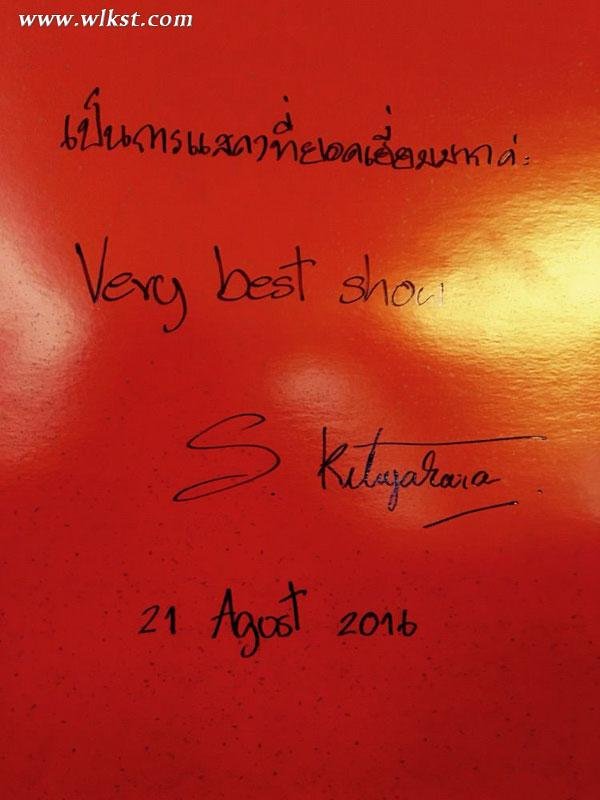 www.wlkst.com
เป็นการแสดงที่ยอดเยี่ยมมากค่ะ
Very best show
S Kitiyakara
21 Agost 2016